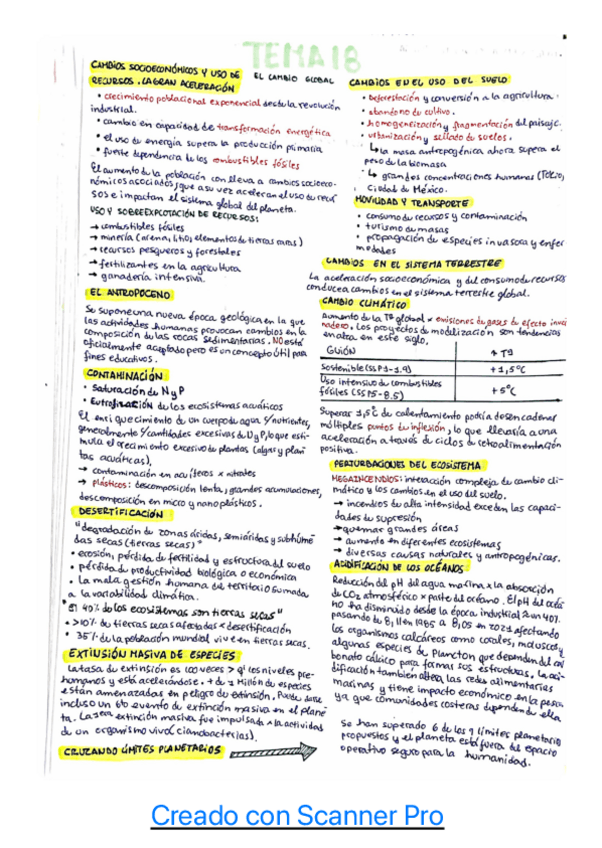 TEMA 18
EL CAMBIO GLOBAL
CAMBIOS SOCIOECONÓMICOS Y USO DE
RECURSOS. LA GRAN ACELERACIÓN
• crecimiento poblacional exponencial desde la revolución
industrial.
• cambio en capacidad de transformación energética
• el uso de energía supera la producción primaria
• fuerte dependencia de los combustibles fósiles
El aumento de la población conlleva a cambios socioeco-
nómicos asociados, que a su vez aceleran el uso de recur
sos e impactan el sistema global del planeta.
USO Y SOBREEXPLOTACIÓN DE RECURSOS:
→ combustibles fósiles
→ minería (arena, litio, elementos de tierras raras)
→ recursos pesqueros y forestales
→ fertilizantes en la agricultura
→ ganadería intensiva.
EL ANTROPOCENO
Se supone una nueva época geológica en la que
las actividades humanas provocan cambios en la
composición de las rocas sedimentarias. NO está
oficialmente aceptado pero es un concepto útil para
fines educativos.
CONTAMINACIÓN
• Saturación de N y P
• Eutrofización de los ecosistemas acuáticos
El enriquecimiento de un cuerpo de agua x nutrientes,
generalmente x cantidades excesivas de N y P, lo que esti-
mula el crecimiento excesivo de plantas (algas y plan
tas acuáticas).
→ contaminación en acuíferos x nitratos
→ plásticos: descomposición lenta, grandes acumulaciones,
descomposición en micro y nanoplásticos.
DESERTIFICACIÓN
"degradación de zonas áridas, semiáridas y subhúme
das secas (tierras secas)"
• erosión, pérdida de fertilidad y estructura del suelo
• pérdida de productividad biológica o económica
• la mala gestión humana del territorio sumada
a la variabilidad climática.
"El 40% de los ecosistemas son tierras secas"
• >10% de tierras secas afectadas x desertificación
• 35% de la población mundial vive en tierras secas.
EXTINSIÓN MASIVA DE ESPECIES
La tasa de extinción es 100 veces > q' los niveles pre-
humanos y está acelerándose. + de 1 millón de especies
están amenazadas en peligro de extinción. Puede darse
incluso un 6to evento de extinción masiva en el plane
ta. La extinción masiva fue impulsada x la actividad
de un organismo vivo (cianobacterias).
CRUZANDO LÍMITES PLANETARIOS
CAMBIOS EN EL USO DEL SUELO
• deforestación y conversión a la agricultura.
• abandono de cultivo.
• homogenización y fragmentación del paisaje.
• urbanización y sellado de suelos.
↳ la masa antropogénica ahora supera el
peso de la biomasa
↳ grandes concentraciones humanas (Tokio,
Ciudad de México.
MOVILIDAD Y TRANSPORTE
• consumo de recursos y contaminación
• turismo de masas
• propagación de especies invasora y enfer
medades
CAMBIOS EN EL SISTEMA TERRESTRE
La aceleración socioeconómica y del consumo de recursos
conduce a cambios en el sistema terrestre global.
CAMBIO CLIMÁTICO
aumento de la Tª global x emisiones de gases de efecto inver
nadero. Los proyectos de modelización son tendencias
en alza en este siglo.
GUIÓN ↑ Tª
Sostenible (SSP1-1.9) +1,5ºC
Uso intensivo de combustibles
fósiles (SSP5-8.5) +5ºC
Superar 1,5ºC de calentamiento podría desencadenar
múltiples puntos de inflexión, lo que llevaría a una
aceleración a través de ciclos de retroalimentación
positiva.
PERTURBACIONES DEL ECOSISTEMA
MEGAINCENDIOS: interacción compleja de cambio cli-
mático y los cambios en el uso del suelo.
→ incendios de alta intensidad exceden las capaci-
dades de supresión
→ queman grandes áreas
→ aumento en diferentes ecosistemas
→ diversas causas naturales y antropogénicas.
ACIDIFICACIÓN DE LOS OCÉANOS
Reducción del pH del agua marina x la absorción
de CO2 atmosférico x parte del océano. El pH del océa
no ha disminuido desde la época industrial un 40%.
pasando de 8,11 en 1985 a 8,05 en 2021 afectando
los organismos calcáreos como corales, moluscos y
algunas especies de plancton que dependen del car
bonato cálcico para formar sus estructuras. La aci-
dificación también altera las redes alimentarias
marinas y tiene impacto económico en la pesca
ya que comunidades costeras dependen de ella
Se han superado 6 de los 9 límites planetario
propuestos y el planeta está fuera del espacio
operativo seguro para la humanidad.
Creado con Scanner Pro